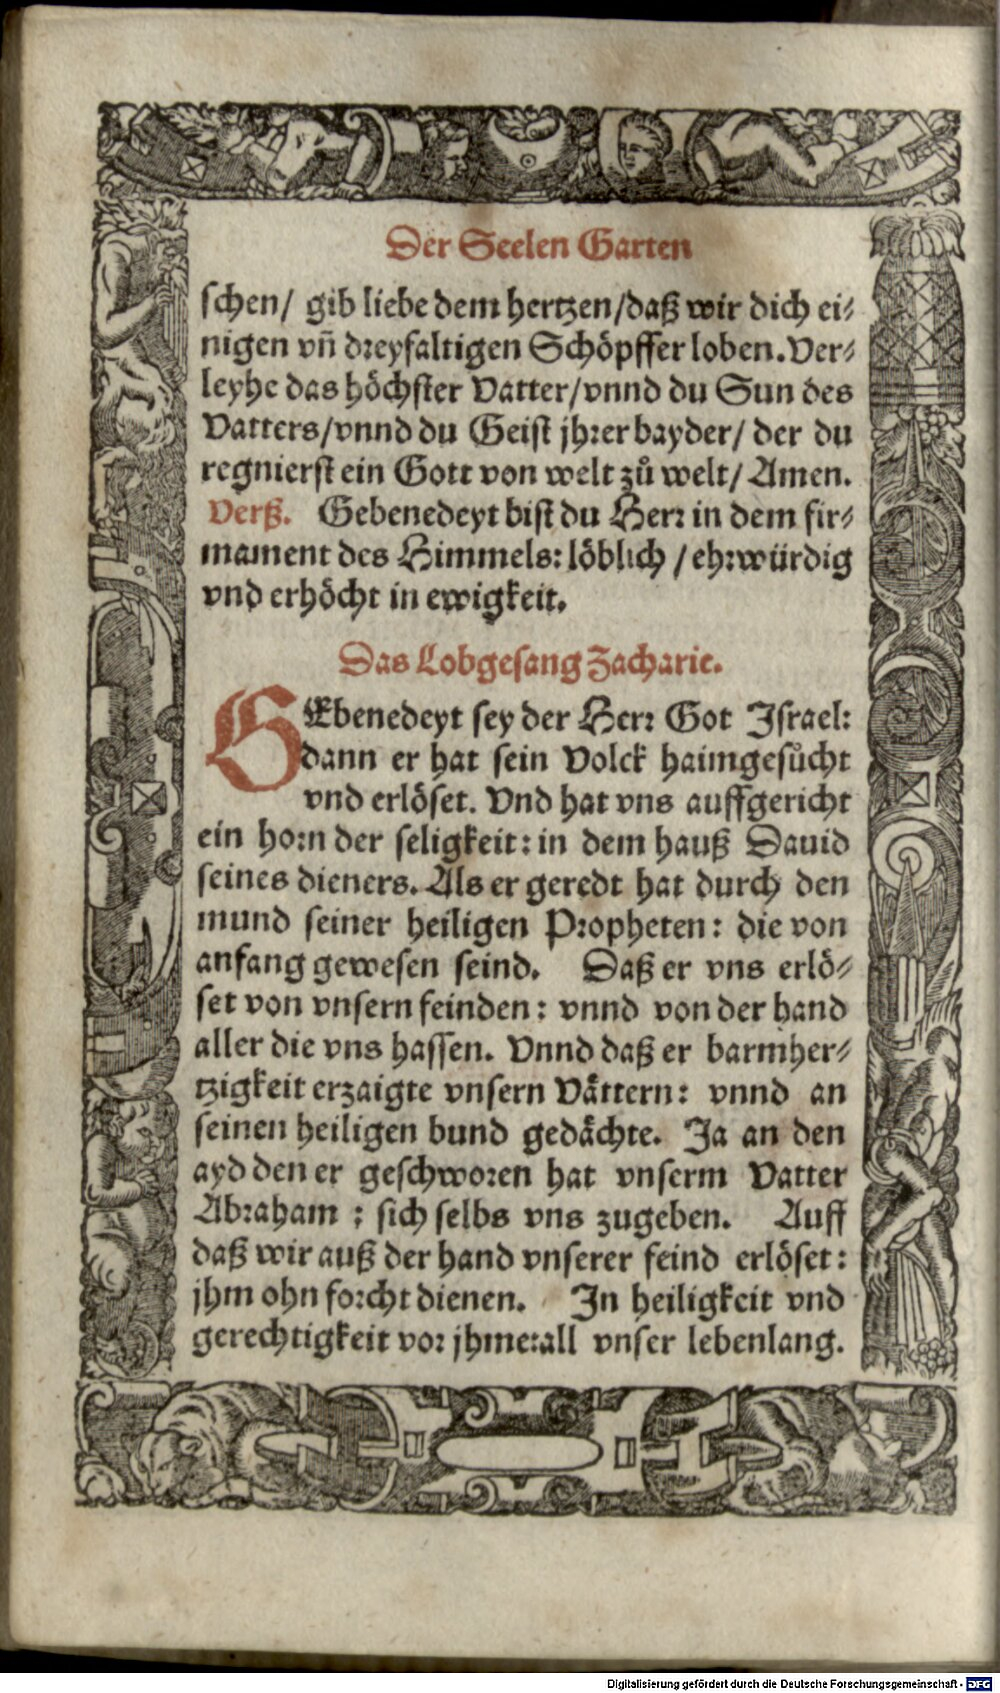 Der Seelen Garten
schen/ gib liebe dem hertzen/daß wir dich ei⸗
nigen vn̄ dreyfaltigen Schöpffer loben. Ver⸗
leyhe das höchster Vatter/vnnd du Sun des
Vatters/vnnd du Geist jhrer bayder/ der du
regnierst ein Gott von welt zů welt/ Amen.
Verß. Gebenedeyt bist du Herr in dem fir⸗
mament des Himmels: löblich / ehrwürdig
vnd erhöcht in ewigkeit.
Das Lobgesang Zacharie.
GEbenedeyt sey der Herr Got Israel:
dann er hat sein Volck haimgesůcht
vnd erlöset. Vnd hat vns auffgericht
ein horn der seligkeit: in dem hauß Dauid
seines dieners. Als er geredt hat durch den
mund seiner heiligen Propheten: die von
anfang gewesen seind. Daß er vns erlö⸗
set von vnsern feinden: vnnd von der hand
aller die vns hassen. Vnnd daß er barmher⸗
tzigkeit erzaigte vnsern Vättern: vnnd an
seinen heiligen bund gedächte. Ja an den
ayd den er geschworen hat vnserm Vatter
Abraham : sich selbs vns zugeben. Auff
daß wir auß der hand vnserer feind erlöset:
jhm ohn forcht dienen. In heiligkeit vnd
gerechtigkeit vor jhme:all vnser lebenlang.
Digitalisierung gefördert durch die Deutsche Forschungsgemeinschaft - DFG